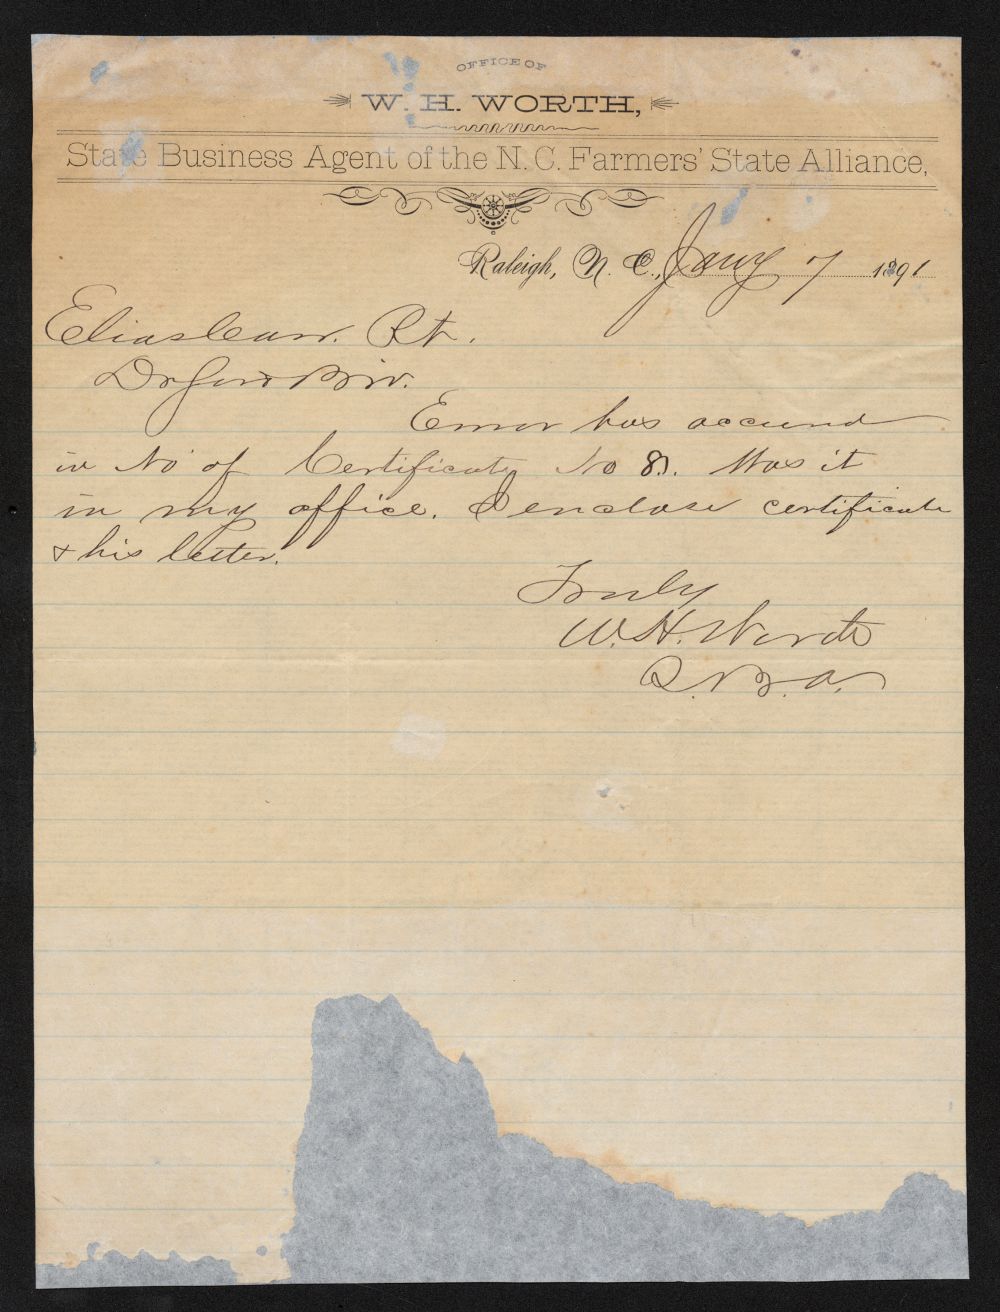 OFFICE OF
W. H. WORTH,
State Business Agent of the N. C. Farmers' State Alliance,
Raleigh, N. C., Jany 7 1891
Elias Carr. Pt.
Dr Sir & Bro.
Error has occured
in No of Certificate No 87. Was it
in my office. I enclose certificate
& his letter.
Truly
W. H. Worth
S. B. A.